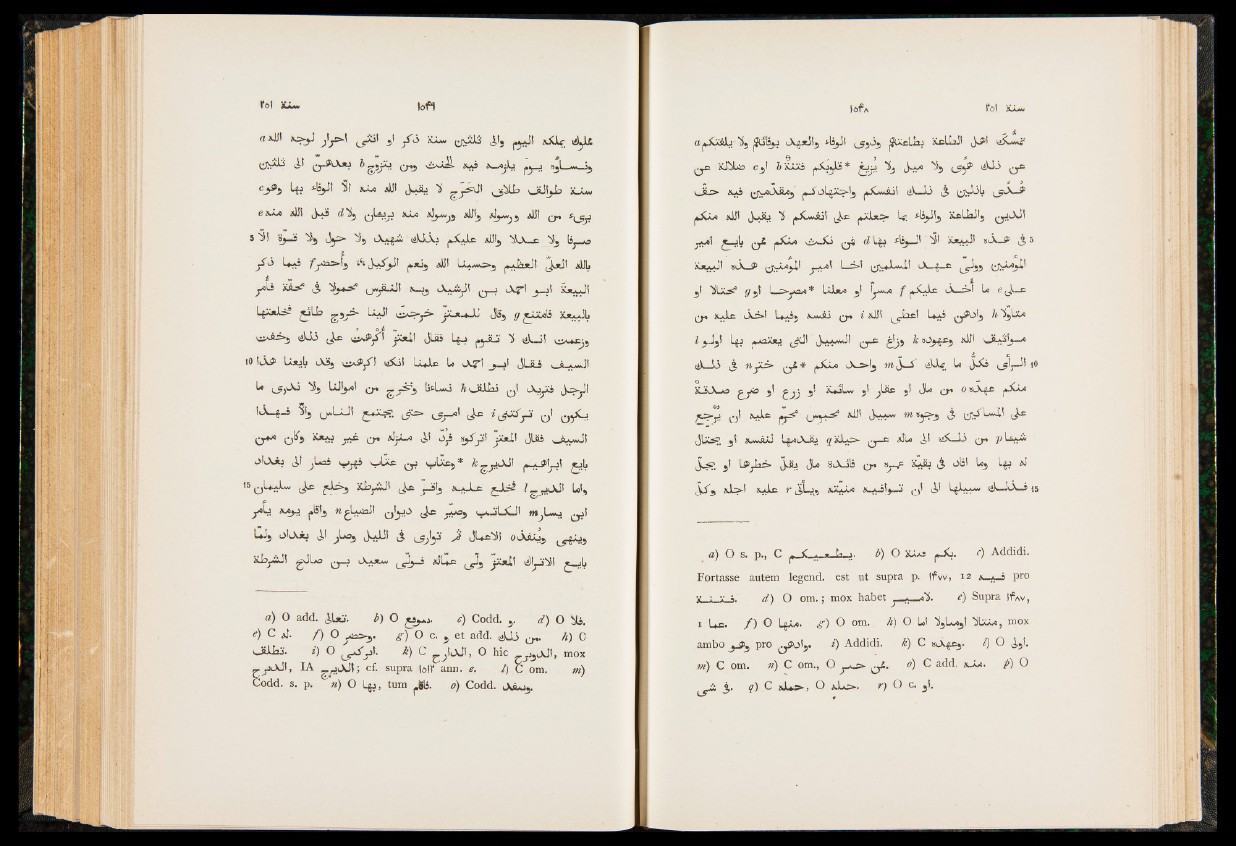 ١٥٤٨ سنة ٢٥١
تمسّك اهل الطاعة بطاعتكم وذوى الوفاء والعهد بوفائكم ولا يلفتكم a
عن ذلك هوًى ولا ميل ولا يُزيغ *قلوبكم فتنةٌ b او c ضلالة عن
هُدًى باذلين فى ذلك انفسكم واجتهادكم ومقدّمين فيه حقّ
الدين والطاعة والوفاء بما جعلتم على انفسكم لا يقبل الله منكم
5 فى هذه البيعة الّا الوفاء بها d فمن نكث منكم ممّن بايع امير
المؤمنين وولىّ عهد المسلمين اخا امير المؤمنين هذه البيعة
على e ما اخذ عليكم f مسرّا او معلنا *مصرحا او g محتالا
او h متاولا وادهن فيما اعطى الله i من نفسه وفيما اخذ عليه من
مواثيق الله وعهوده k وزاغ عن السبيل التى يعتصم بها اولو l
10 الرأى فكلّ ما يملك كلّ m واحد منكم *ممّن ختر n فى ذلك
منكم عهده o من مال او عقار او سائمة او زرع او ضرع صدقة
على المساكين فى وجوه m سبيل الله محبوس محرّم عليه ان يُرجع
شيئا p من ذلك الى ماله عن حيلة q يقدّمها لنفسه او يحتال
له بها وما افاد فى بقيّة عمره من فائدة مال يقلّ خطرها او يجلّ
15 فذلك سبيلها الى ان توافيه منيّته ويأتى r عليه اجله وكلّ
a) O s. p., C يـطـعـيـكم. b) O يكم فتنة. c) Addidi.
Fortasse autem legend. est ut supra p. ١٤٧٧, 12 فيه pro
فتنة. d) O om.; mox habet لامير. e) Supra ١٤٨٧,
1 عما. f) O منها. g) O om. h) O اومنالا اما ومثالا, mox
ambo وهو pro وادهن. i) Addidi. k) C وعهده. l) O اولى.
m) C om. n) C om., O عن حمر. o) C add. منه. p) O
فى شى. q) C حمله, O حيله. r) O c. او.
١٥٤٩ سنة ٢٥١
مملوك يملكه اليوم والى ثلثين سنة ذكر او انثى احرار لوجه الله a
ونساؤه يوم يلزمه فيه الحنث ومن يتزوّج b بعدهنّ الى ثلثين
سنة طوالق طلاق الحَرَج لا يقبل الله منه الّا الوفاء بها وهو c
برىء من الله ورسوله والله ورسوله منه بريان ولا d قبل الله منه e
5 صرفا ولا عدلا والله عليكم بذلك شهيد ولا حول ولا قوّة الّا
بالله العلىّ العظيم وحسبنا الله ونعم الوكيل، واُحضر f فيما ذكر
البيعة ابو احمد بن الرشيد وبه النقرس محمولا فى محفّة فأمر
بالبيعة فامتنع g وقال للمعتزّ خرجتَ الينا خروج طائع فخلعتها
وزعمت انك لا تقوم بها فقال المعتزّ اُكرهتُ على ذلك وخفت
10 السيف فقال ابو احمد ما علمنا انك اكرهت وقد بايعنا هذا
الرجل فتريد ان تطلق h نساءنا ونخرج من اموالنا ولا ندرى ما
يكون ان تركتنى i على امرى حتى يجتمع الناس والّا فهذا
السيف فقال المعتزّ اتركوه فرُدّ الى منزله من غير بيعة وكان ممن
بايع ابراهيم الديرج k *وعتّاب بن عتّاب فهرب فصار الى بغداد
15 واما الديرج l فخلع عليه واقرّ على الشرطة وخلع على سليمان
ابن يسار m الكاتب وصيّر على ديوان الضياع n فاقام يومه يأمر
وينهى وينفذ o الاعمال ثم توارى فى الليل وصار الى بغداد ولمّا
بايع الاتراك المعتزّ ولّى عمّاله فولّى سعيد بن صالح الشرطة
a) O add. تعالى. b) O . c) Codd. و. d) O فلا.
e) C له. f) O وحضر. g) O c. و et add. من ذلك. h) C
تطلقـ. i) O اتركنى. k) C الدارج, O hic الديورج, mox
الديرج, IA الديريج; cf. supra ann. e. l) C om. m)
Codd. s. p. n) O بها, tum فاقام. o) Codd. وينفد.